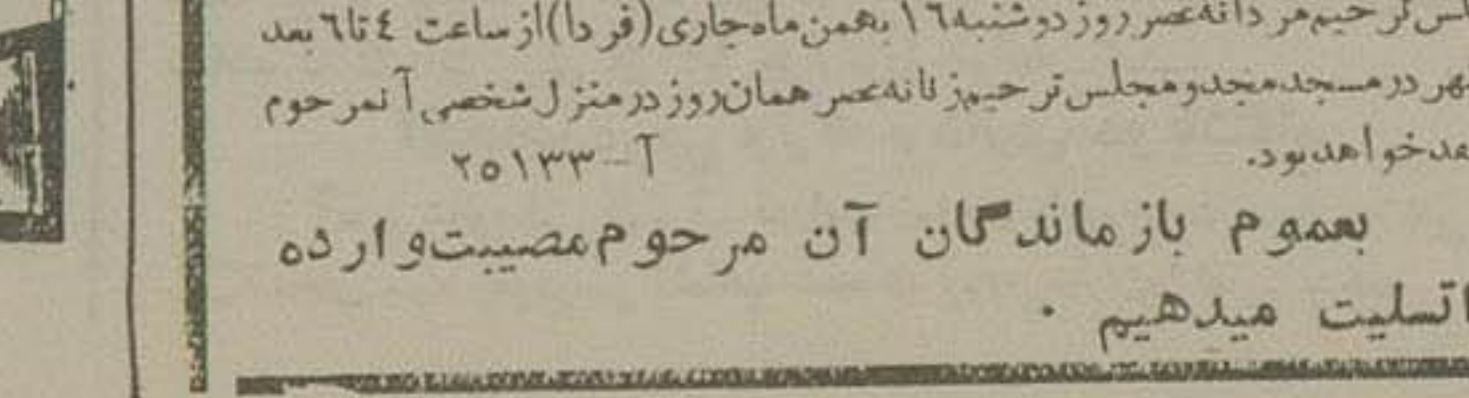 ترحیم مردانه عصر روز دوشنبه ١٦ بهمن ماه جاری (فردا) از ساعت ٤ تا ٦ بعد
در مسجد مجد و مجلس ترحیم زنانه عصر همان روز در منزل شخصی آنمرحوم
خواهد بود.
آ–۲۵۱۳۳
بعموم بازماندگان آن مرحوم مصیبت وارده
تسلیت میدهیم .